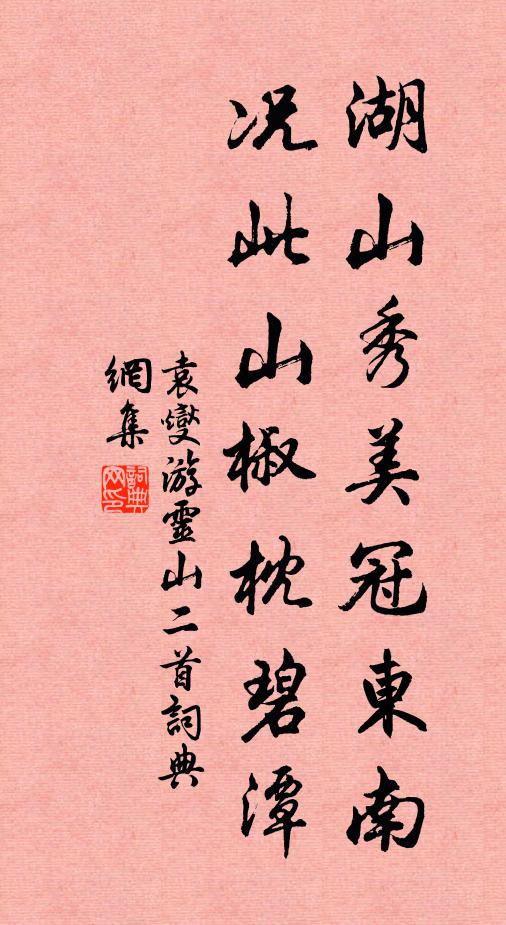 湖山秀美冠東南
况此山椒枕碧潭
袁燮游靈山二首詞典
網集
詞典
网印